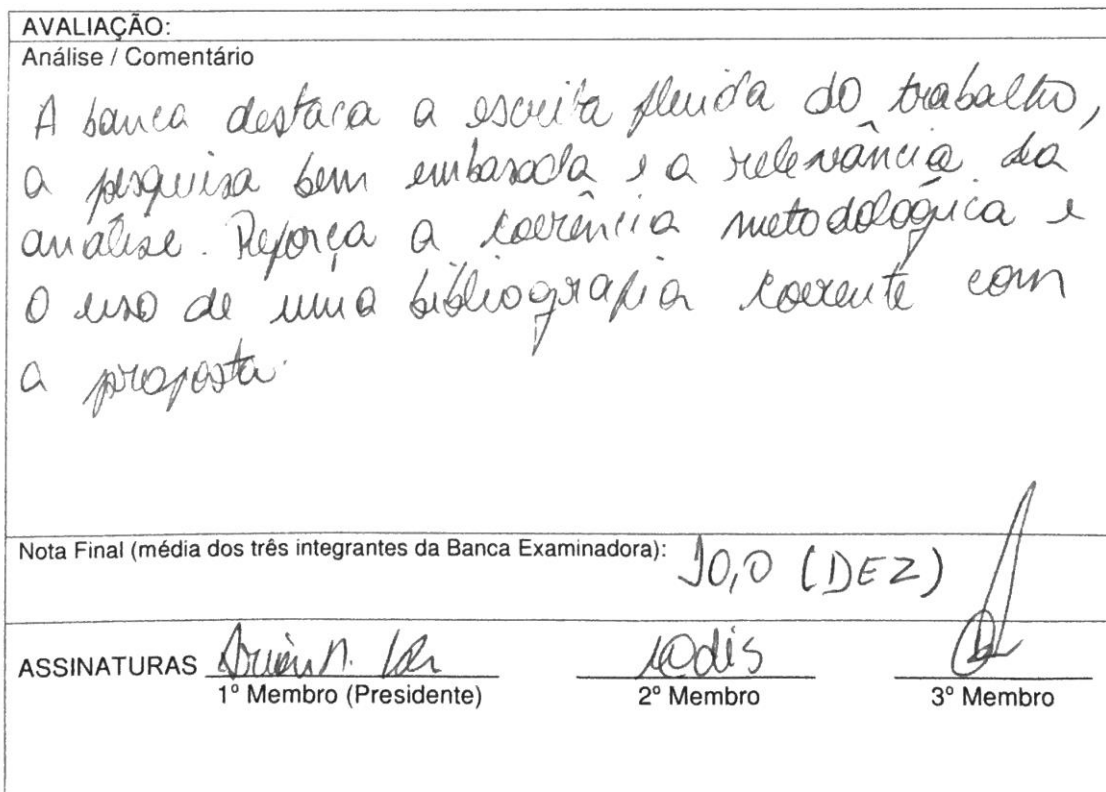 AVALIAÇÃO:
Análise / Comentário
A banca destaca a escrita fluida do trabalho,
a pesquisa bem embasada e a relevância da
análise. Reforça a coerência metodológica e
o uso de uma bibliografia coerente com
a proposta.
Nota Final (média dos três integrantes da Banca Examinadora): 10,0 (DEZ)
ASSINATURAS
1º Membro (Presidente) 2º Membro 3º Membro